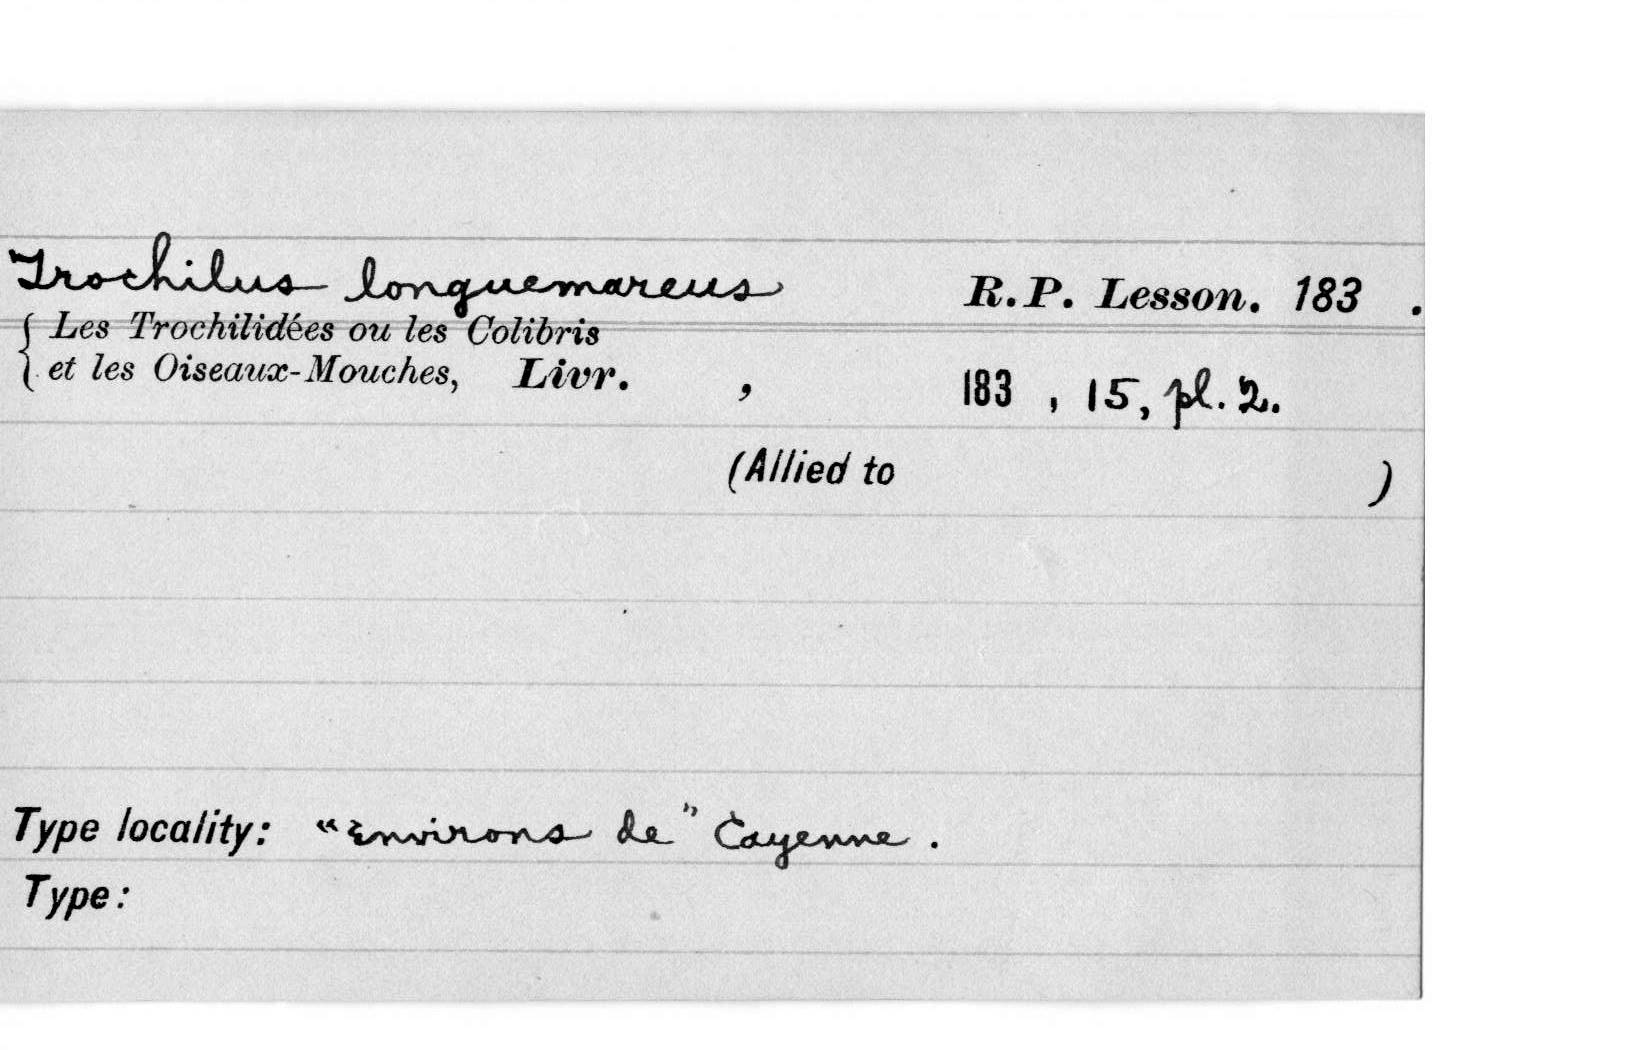 Trochilus longuemareus R.P. Lesson. 183 .
{ Les Trochilidées ou les Colibris
et les Oiseaux-Mouches, Livr. , 183 , 15, pl. 2.
(Allied to )
Type locality: "Environs de" Cayenne .
Type: